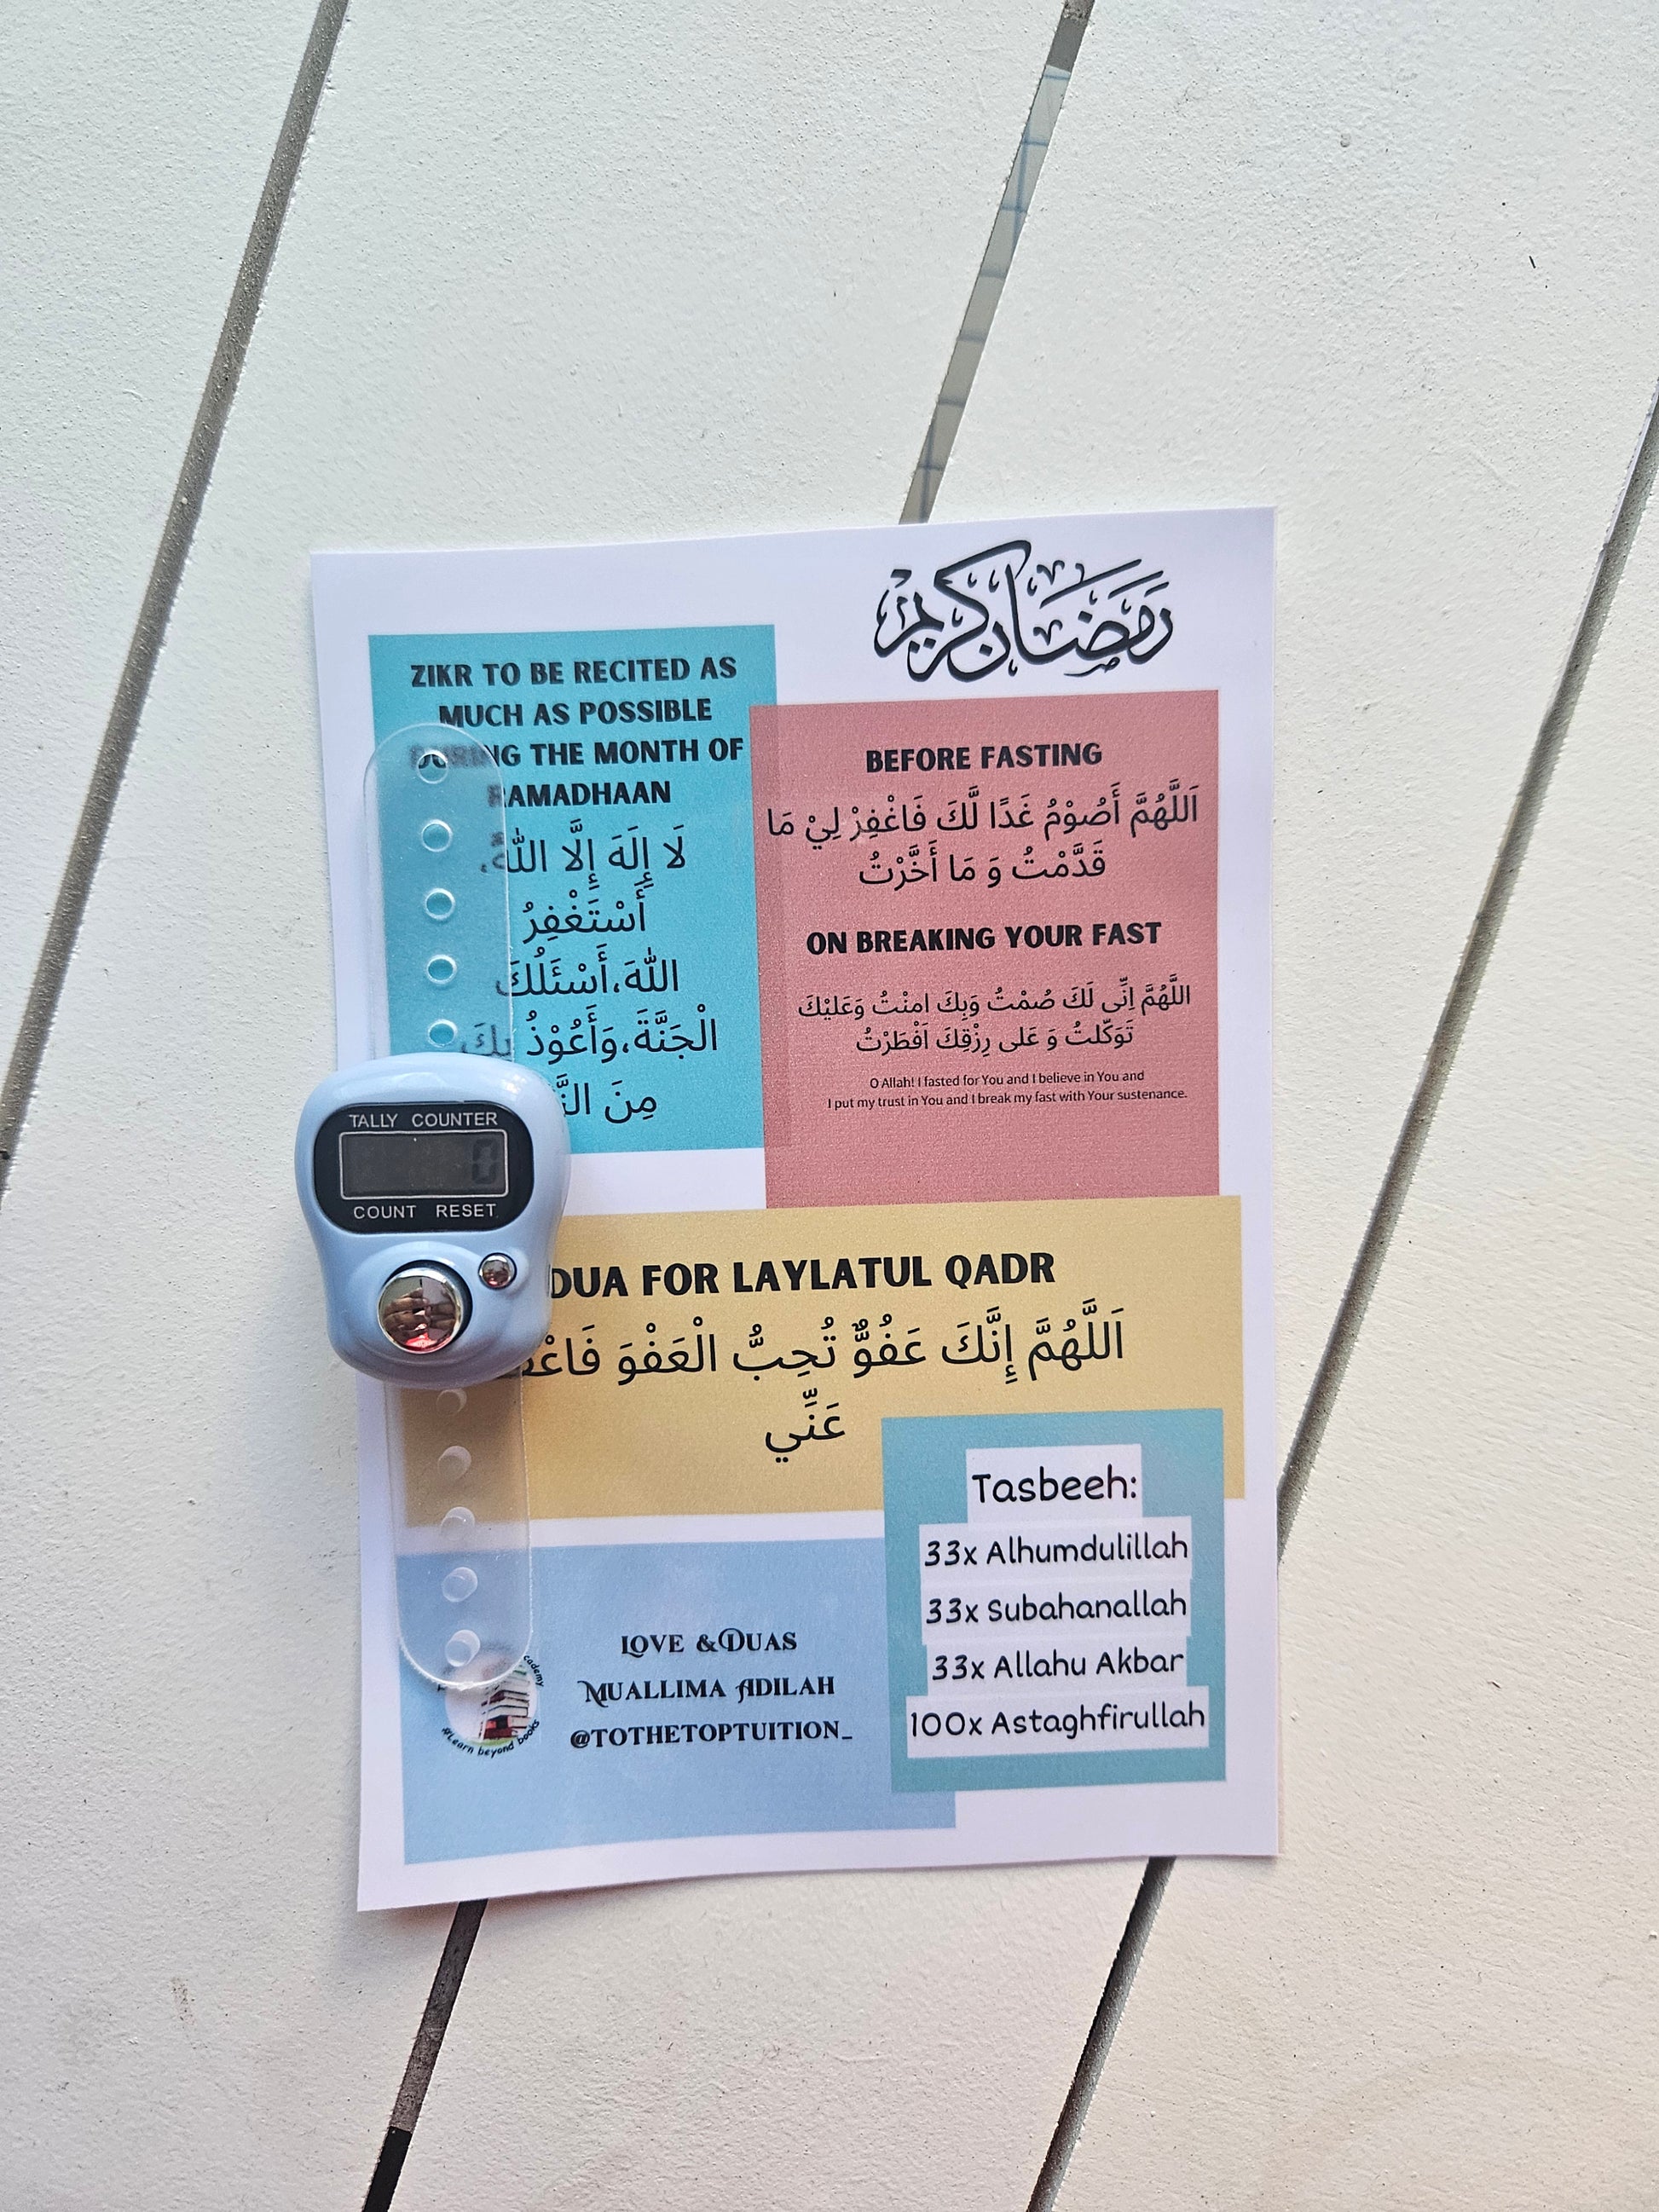 رمضان كريم
ZIKR TO BE RECITED AS
MUCH AS POSSIBLE
DURING THE MONTH OF
RAMADHAAN
لَا إِلَهَ إِلَّا اللّٰهُ،
أَسْتَغْفِرُ
اللّٰهَ،أَسْئَلُكَ
الْجَنَّةَ،وَأَعُوْذُ بِكَ
مِنَ
BEFORE FASTING
اَللَّهُمَّ أَصُوْمُ غَدًا لَّكَ فَاغْفِرْ لِيْ مَا
قَدَّمْتُ وَ مَا أَخَّرْتُ
ON BREAKING YOUR FAST
اللَّهُمَّ اِنِّى لَكَ صُمْتُ وَبِكَ امنْتُ وَعَليْكَ
تَوَكّلتُ وَ عَلى رِزْقِكَ اَفْطَرْتُ
O Allah! I fasted for You and I believe in You and
I put my trust in You and I break my fast with Your sustenance.
TALLY COUNTER
0
COUNT RESET
DUA FOR LAYLATUL QADR
اَللَّهُمَّ إِنَّكَ عَفُوٌّ تُحِبُّ الْعَفْوَ
عَنِّي
Tasbeeh:
33x Alhumdulillah
33x Subahanallah
33x Allahu Akbar
100x Astaghfirullah
LOVE & DUAS
MUALLIMA ADILAH
@TOTHETOPTUITION_
#Learn beyond books